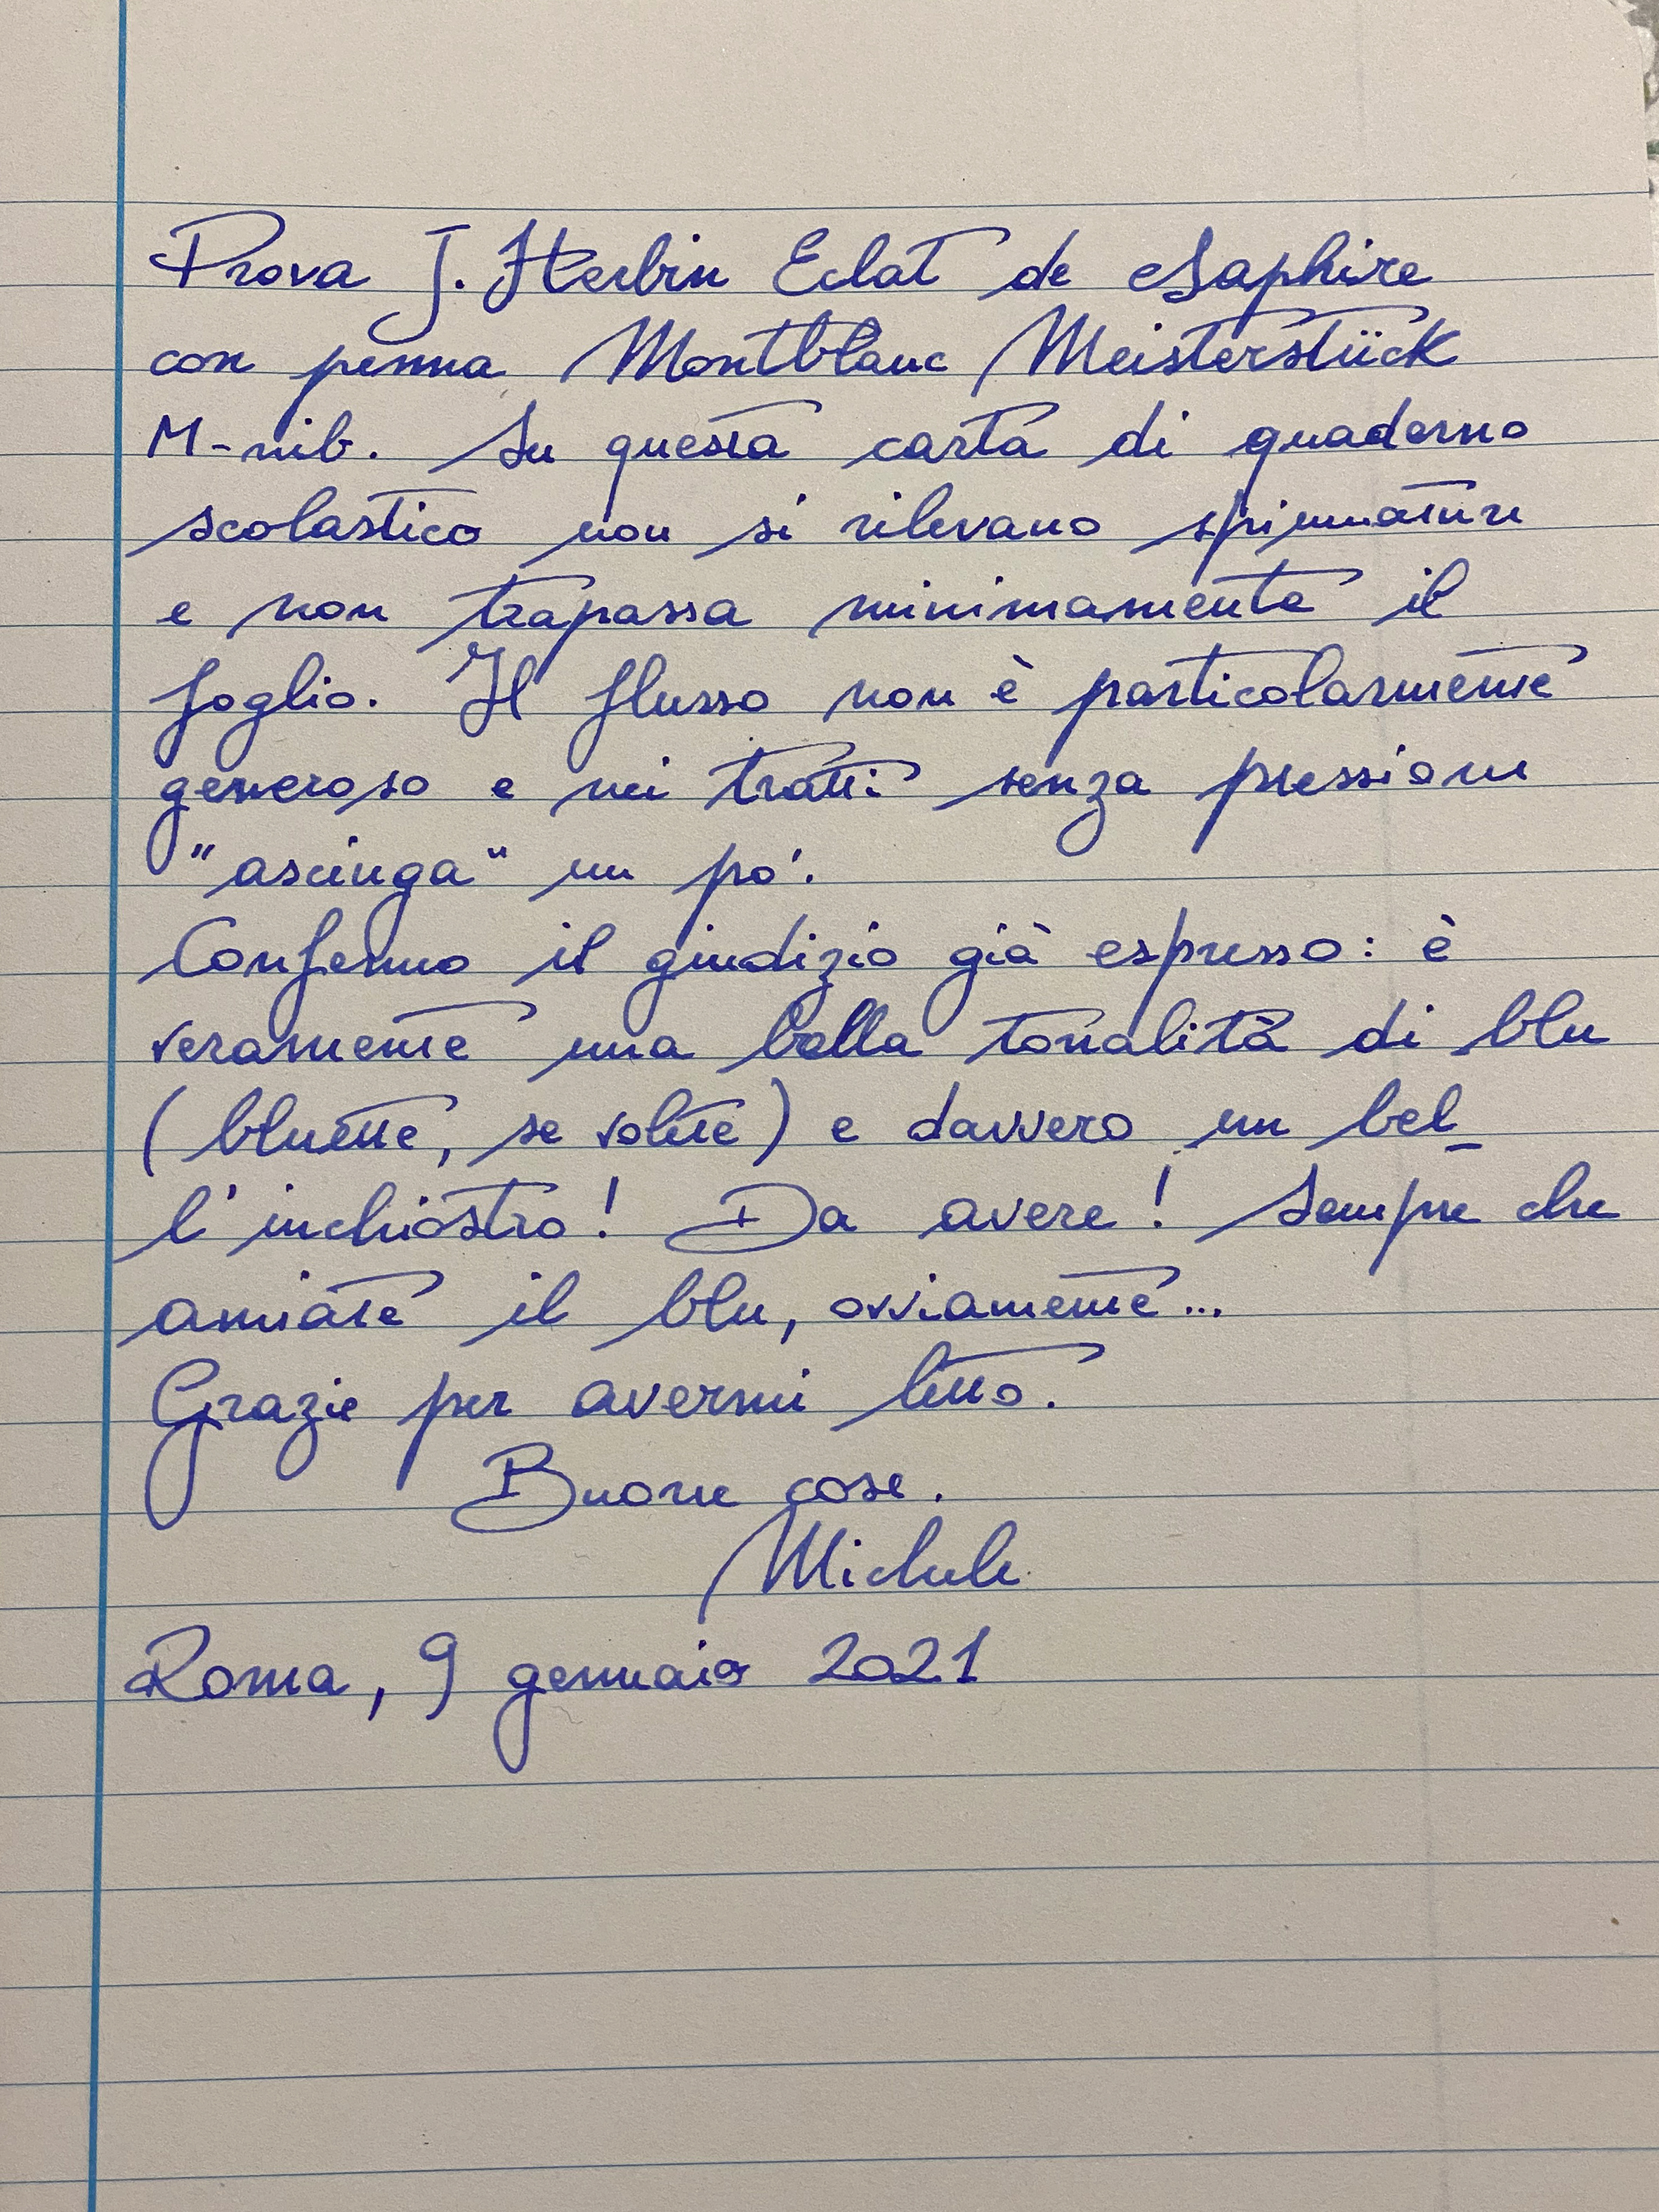 Prova J. Herbin Eclat de Saphire
con penna Montblanc Meisterstück
M-nib. Su questa carta di quaderno
scolastico non si rilevano spiumature
e non trapassa minimamente il
foglio. Il flusso non è particolarmente
generoso e nei tratti senza pressione
"asciuga" un po'.
Confermo il giudizio già espresso: è
veramente una bella tonalità di blu
(bluette, se volete) e davvero un bel_
l'inchiostro! Da avere! Sempre che
amiate il blu, ovviamente...
Grazie per avermi letto.
Buone cose.
Michele
Roma, 9 gennaio 2021